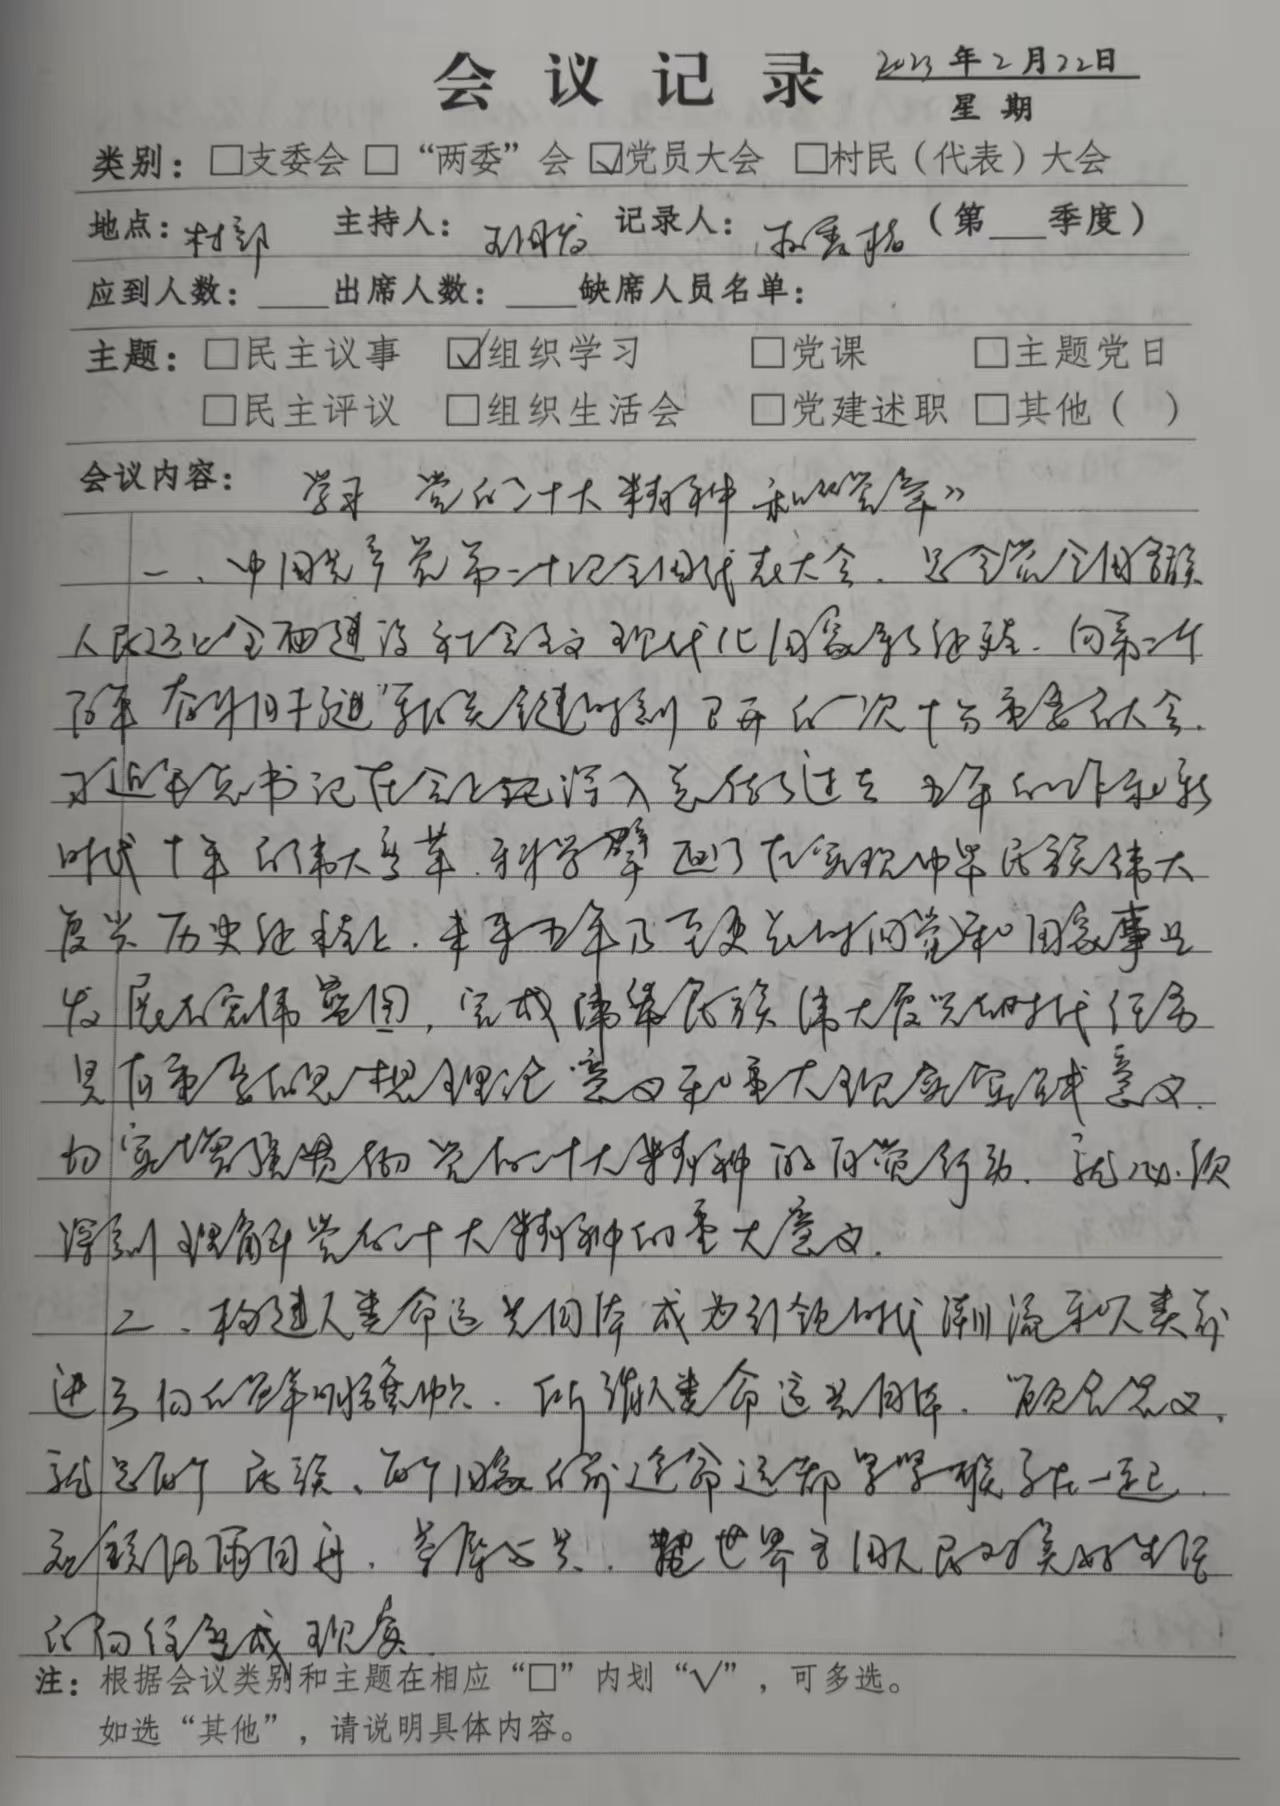 会议记录 2023年2月22日
星期
类别：□支委会 □“两委”会 ☑党员大会 □村民（代表）大会
地点：村部 主持人： 记录人： （第___季度）
应到人数：____出席人数：____缺席人员名单：
主题：□民主议事 ☑组织学习 □党课 □主题党日
□民主评议 □组织生活会 □党建述职 □其他（ ）
会议内容： 学习 党的二十大精神和《党章》
一、中国共产党第二十次全国代表大会，是全党全国各族
人民迈上全面建设社会主义现代化国家新征程，向第二个
百年奋斗目标进军的关键时刻召开的一次十分重要的大会。
习近平总书记在会上深入总结了过去五年的工作和新
时代十年的伟大变革，科学擘画了在实现中华民族伟大
复兴历史征程上，未来五年乃至更长时间党和国家事业
发展的宏伟蓝图，完成中华民族伟大复兴的时代任务
具有重要的思想理论意义和重大现实实践意义。
切实增强贯彻党的二十大精神的自觉行动，就必须
深刻理解党的二十大精神的重大意义。
二、构建人类命运共同体成为引领时代潮流和人类前
进方向的鲜明旗帜。所谓人类命运共同体，顾名思义，
就是每个民族、每个国家的前途命运都紧紧联系在一起，
应该风雨同舟，荣辱与共，把世界各国人民对美好生活
的向往变成现实。
注：根据会议类别和主题在相应“□”内划“√”，可多选。
如选“其他”，请说明具体内容。